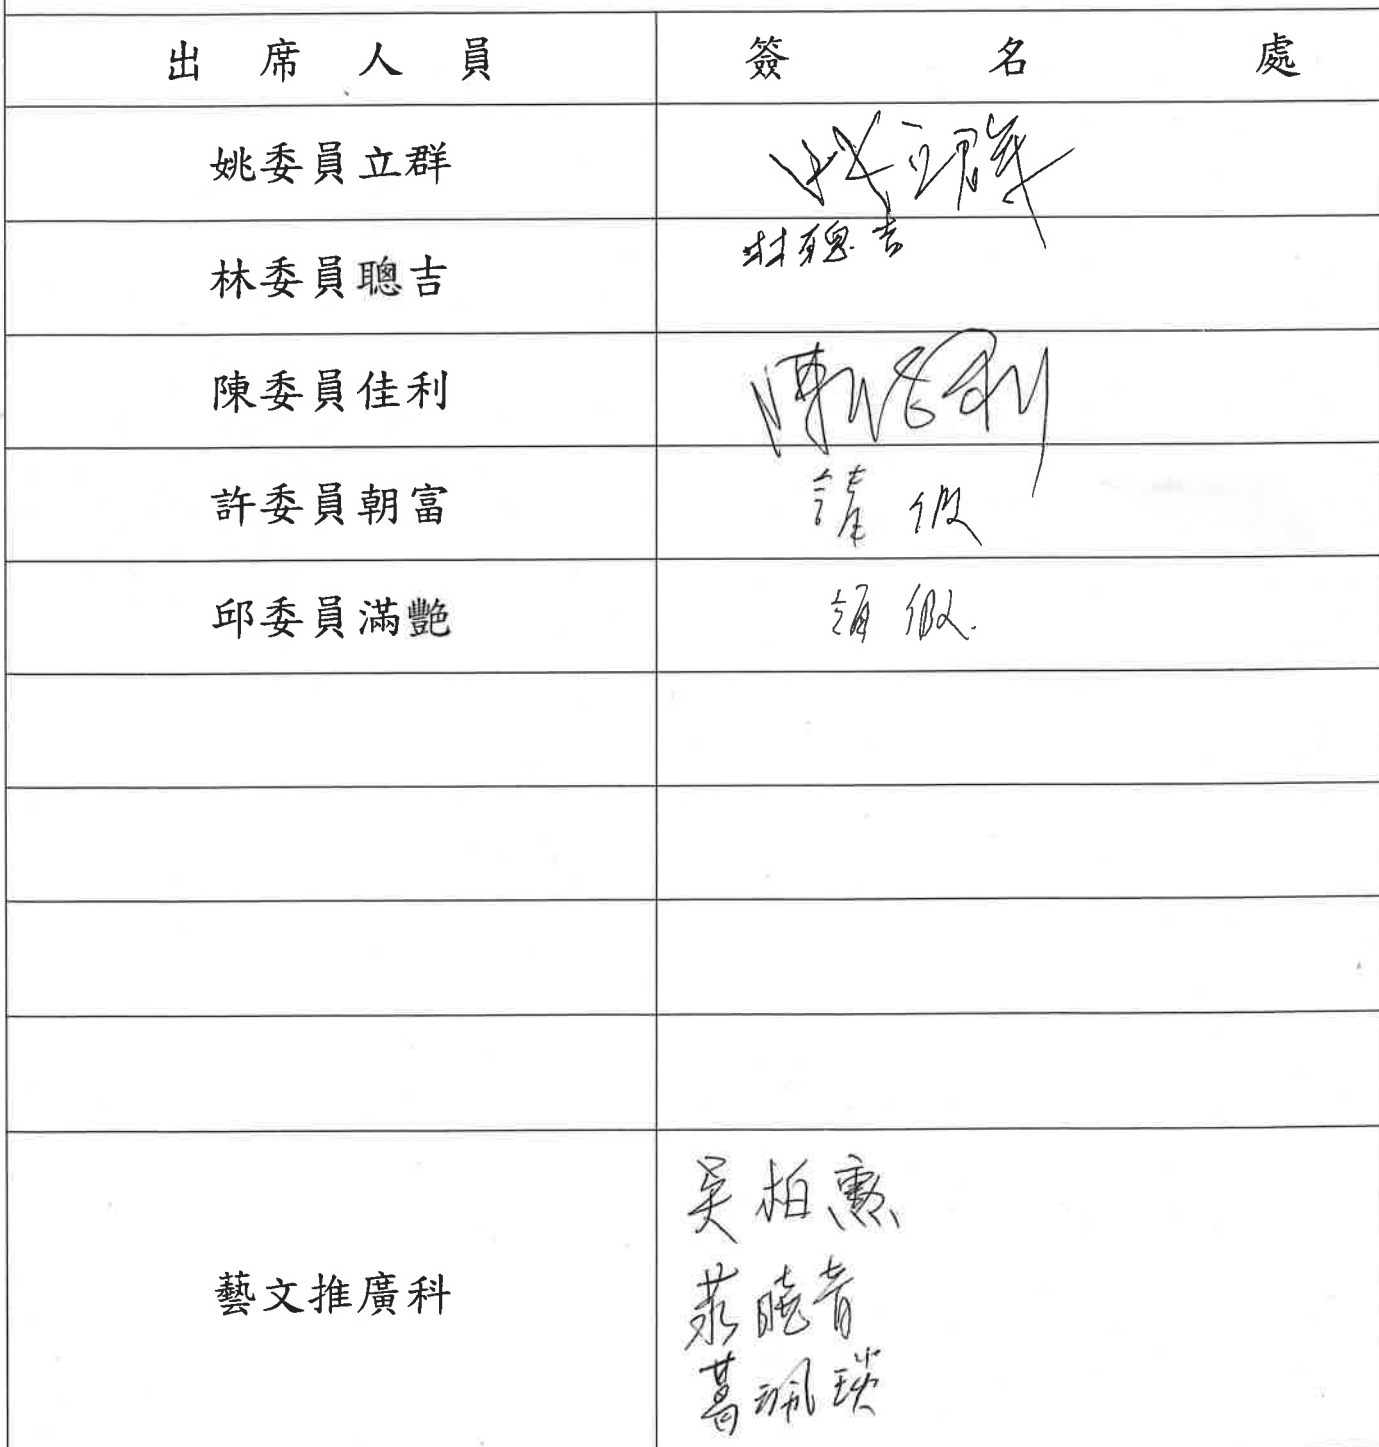 出席人員 簽名處
姚委員立群 姚立群
林委員聰吉 林聰吉
陳委員佳利 陳佳利
許委員朝富 請假
邱委員滿艷 請假
吳柏勳
藝文推廣科
曉青
葛珮琰